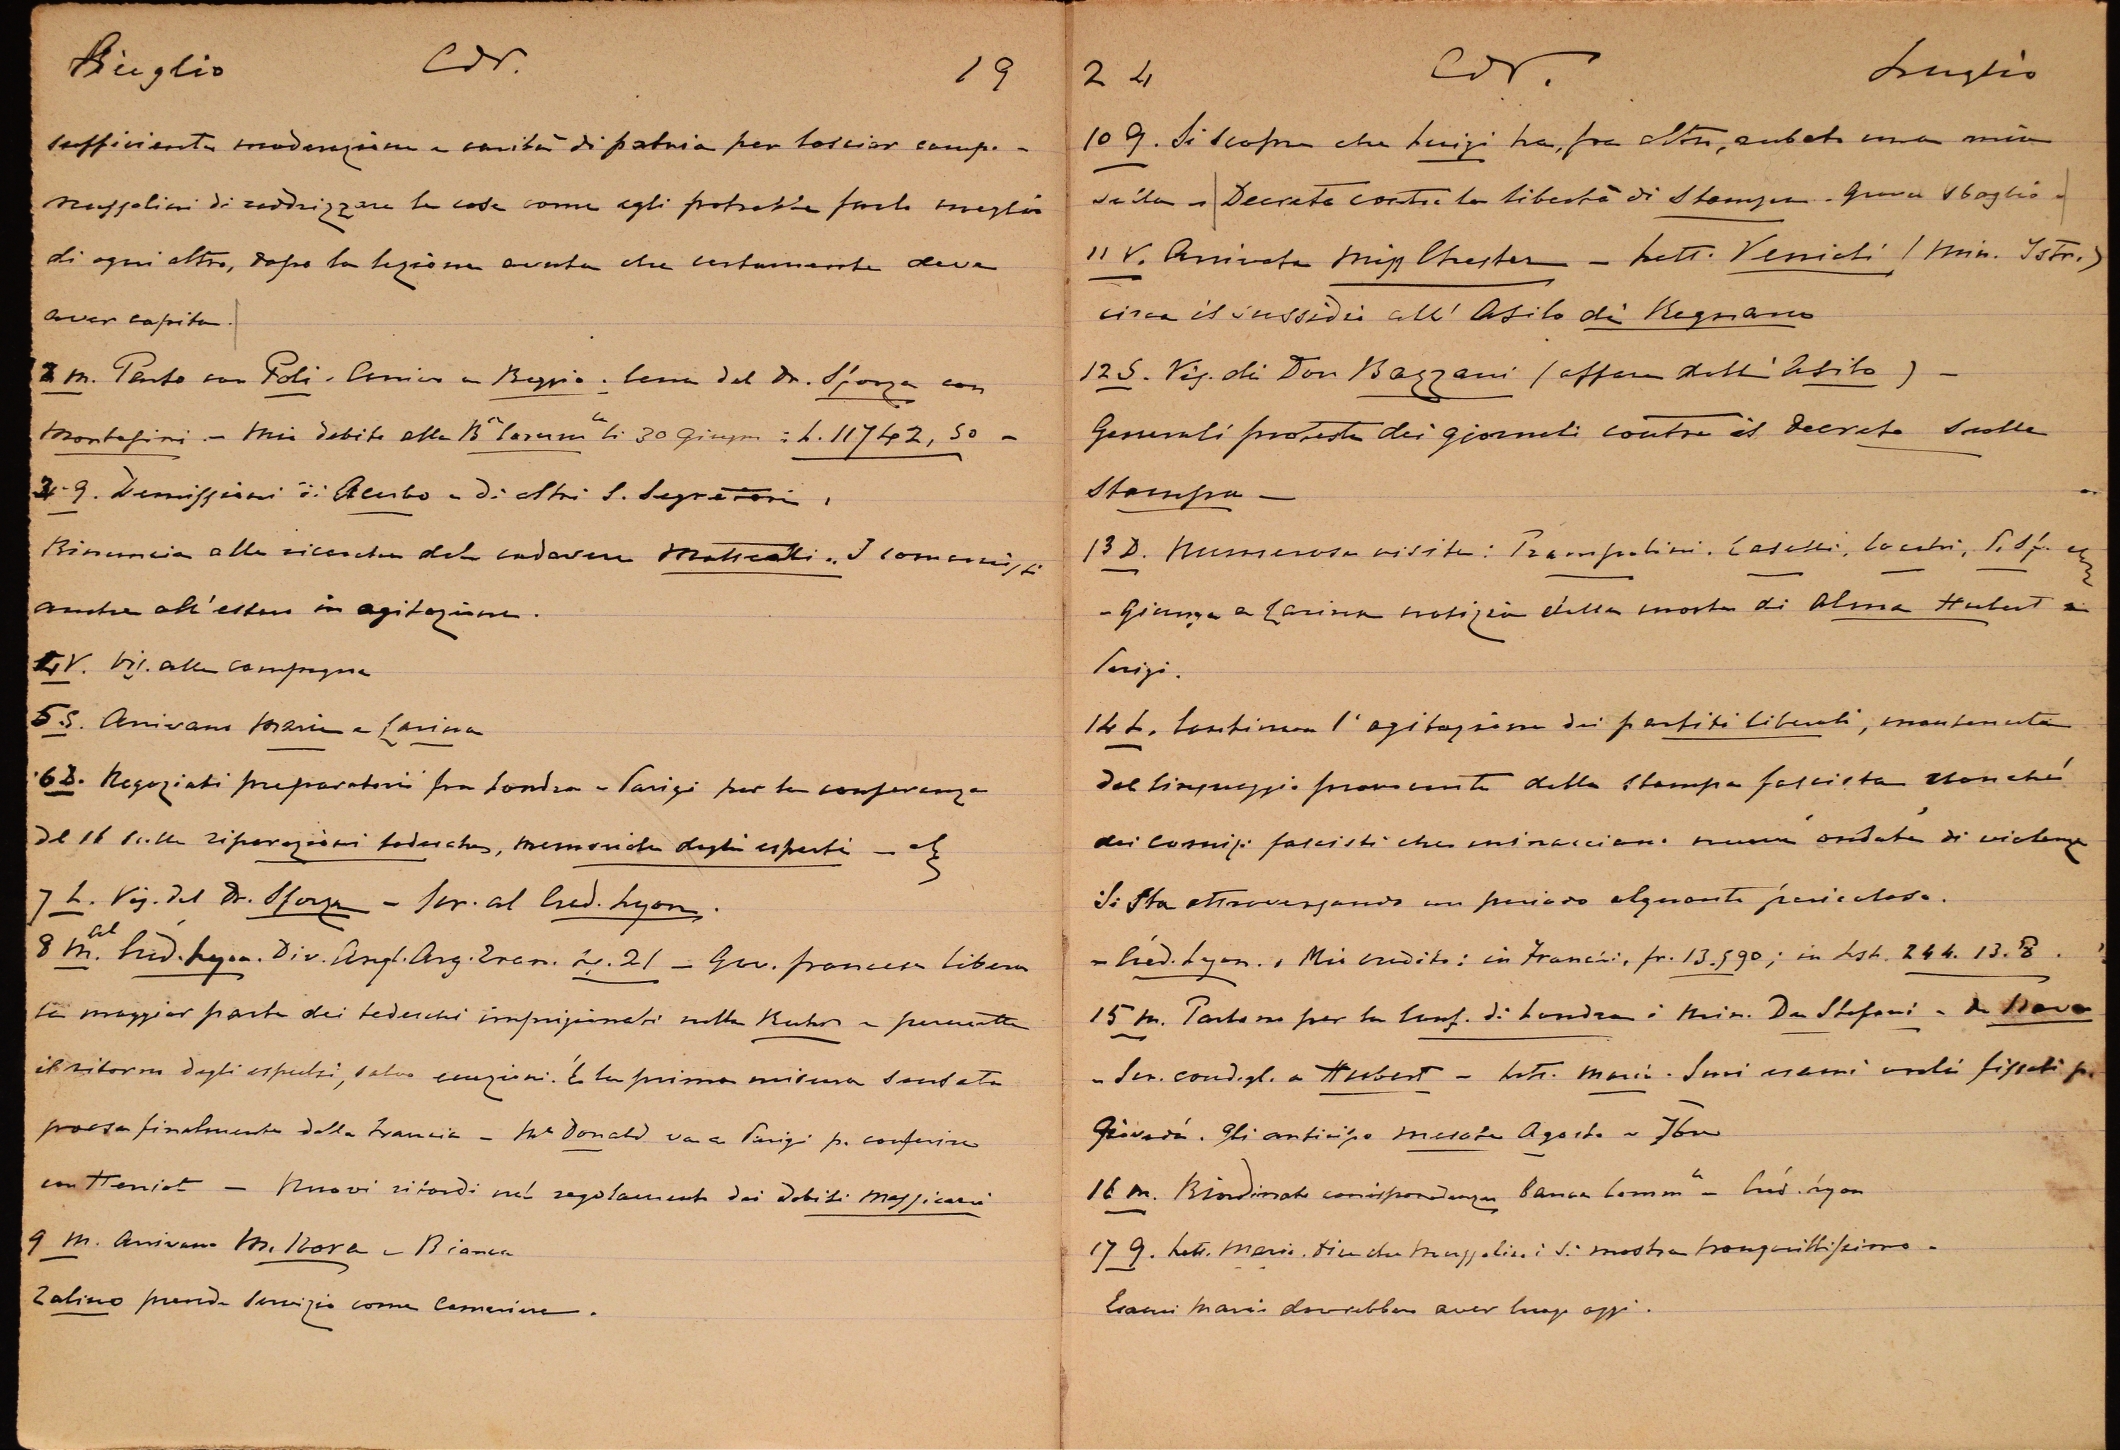 Luglio CdV. 19
sufficiente moderazione e carità di patria per lasciar campo a
Mussolini di raddrizzare le cose come egli potrebbe farlo meglio
di ogni altro, dopo la lezione avuta che certamente deve
aver capita.
2 M. Parto con Poli. Arrivo a Reggio. Cena dal Dr. Sforza con
Montasini - Mio debito alla Bca Comm le li 30 Giugno: L. 11742,50 -
3 G. Dimissioni di Acerbo e di altri S. Segretari.
Rinuncia alle ricerche del cadavere Matteotti. I comunisti
anche all'estero in agitazione.
4 V. Vis. alla campagna
5 S. Arrivano Maria e Larina
6 D. Negoziati preparatorii fra Londra e Parigi per la conferenza
del 16 sulle riparazioni tedesche, memoriale degli esperti -
7 L. Vis. del Dr. Sforza - Scr. al Créd. Lyon.
8 M. al Créd. Lyon. Div. Angl. Arg. Tran. Ls. 21 - Gov. francese libera
la maggior parte dei tedeschi imprigionati nella Ruhr e permette
il ritorno degli espulsi, salvo eccezioni. È la prima misura sensata
presa finalmente dalla Francia - Mc Donald va a Parigi p. conferire
con Herriot - Nuovi ritardi nel regolamento dei debiti messicani
9 M. Arrivano M. Nora e Bianca
Zalino prende servizio come cameriere.
24 CdV. Luglio
10 G. Si scopre che Luigi ha, fra altro, rubato una mia
sella - Decreto contro la libertà di stampa. Grave sbaglio -
11 V. Arrivata Miss Chester - Lett. Venidi (Min. Istr.)
circa il sussidio all'Asilo di Regnano
12 S. Vis. di Don Bazzani (affare dell'Asilo) -
Generali proteste dei giornali contro il decreto sulla
stampa -
13 D. Numerose visite: Prampolini. Caselli, Cocchi, P. Sf.
- Giunge a Larina notizia della morte di Alma Hubert a
Parigi.
14 L. Continua l'agitazione dei partiti liberali, mantenuta
dal linguaggio provocante della stampa fascista nonché
dei comizi fascisti che minacciano nuove ondate di violenze
Si sta attraversando un periodo alquanto pericoloso.
- Créd. Lyon. Mio credito: in Franchi, fr. 13.590; in Lst. 244. 13. 8.
15 M. Partono per la Conf. di Londra i Min. De Stefani e de Nava
- Scr. condogl. a Hubert - Lett. Mario. Suoi esami orali fissati p.
Giovedì. Gli anticipo mesate Agosto e 7bre
16 M. Riordinata corrispondenza Banca Comm le Créd. Lyon
17 G. Lett. Mario. Dice che Mussolini si mostra tranquillissimo -
Esami Mario dovrebbero aver luogo oggi.